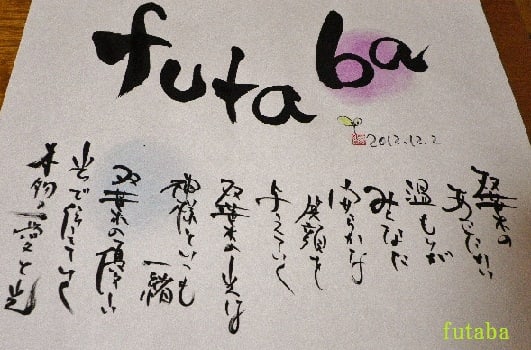 futaba
2012.12.2
双葉の
あたたかい
温もりが
みんなに
安らかな
笑顔を
与えていく
双葉の光は
神様といつも
一緒
双葉の優しい
光で
本物の愛と光
futaba